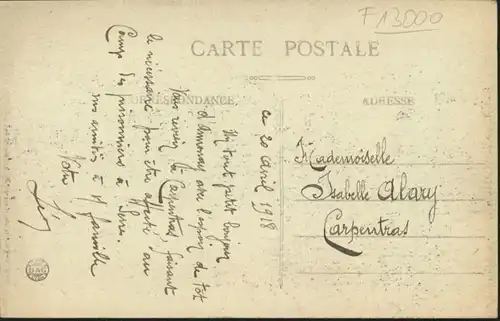 F13D00
CARTE POSTALE
CORRESPONDANCE
ADRESSE
ce 20 avril 1918
Un tout petit bonjour
d'Annonay avec l'espoir de tôt
vous revoir à Carpentras faisant
le nécessaire pour être affecté au
Camp des prisonniers à Serre.
mes amitiés à Mr
Votre
Mademoiselle
Isabelle Alary
Carpentras